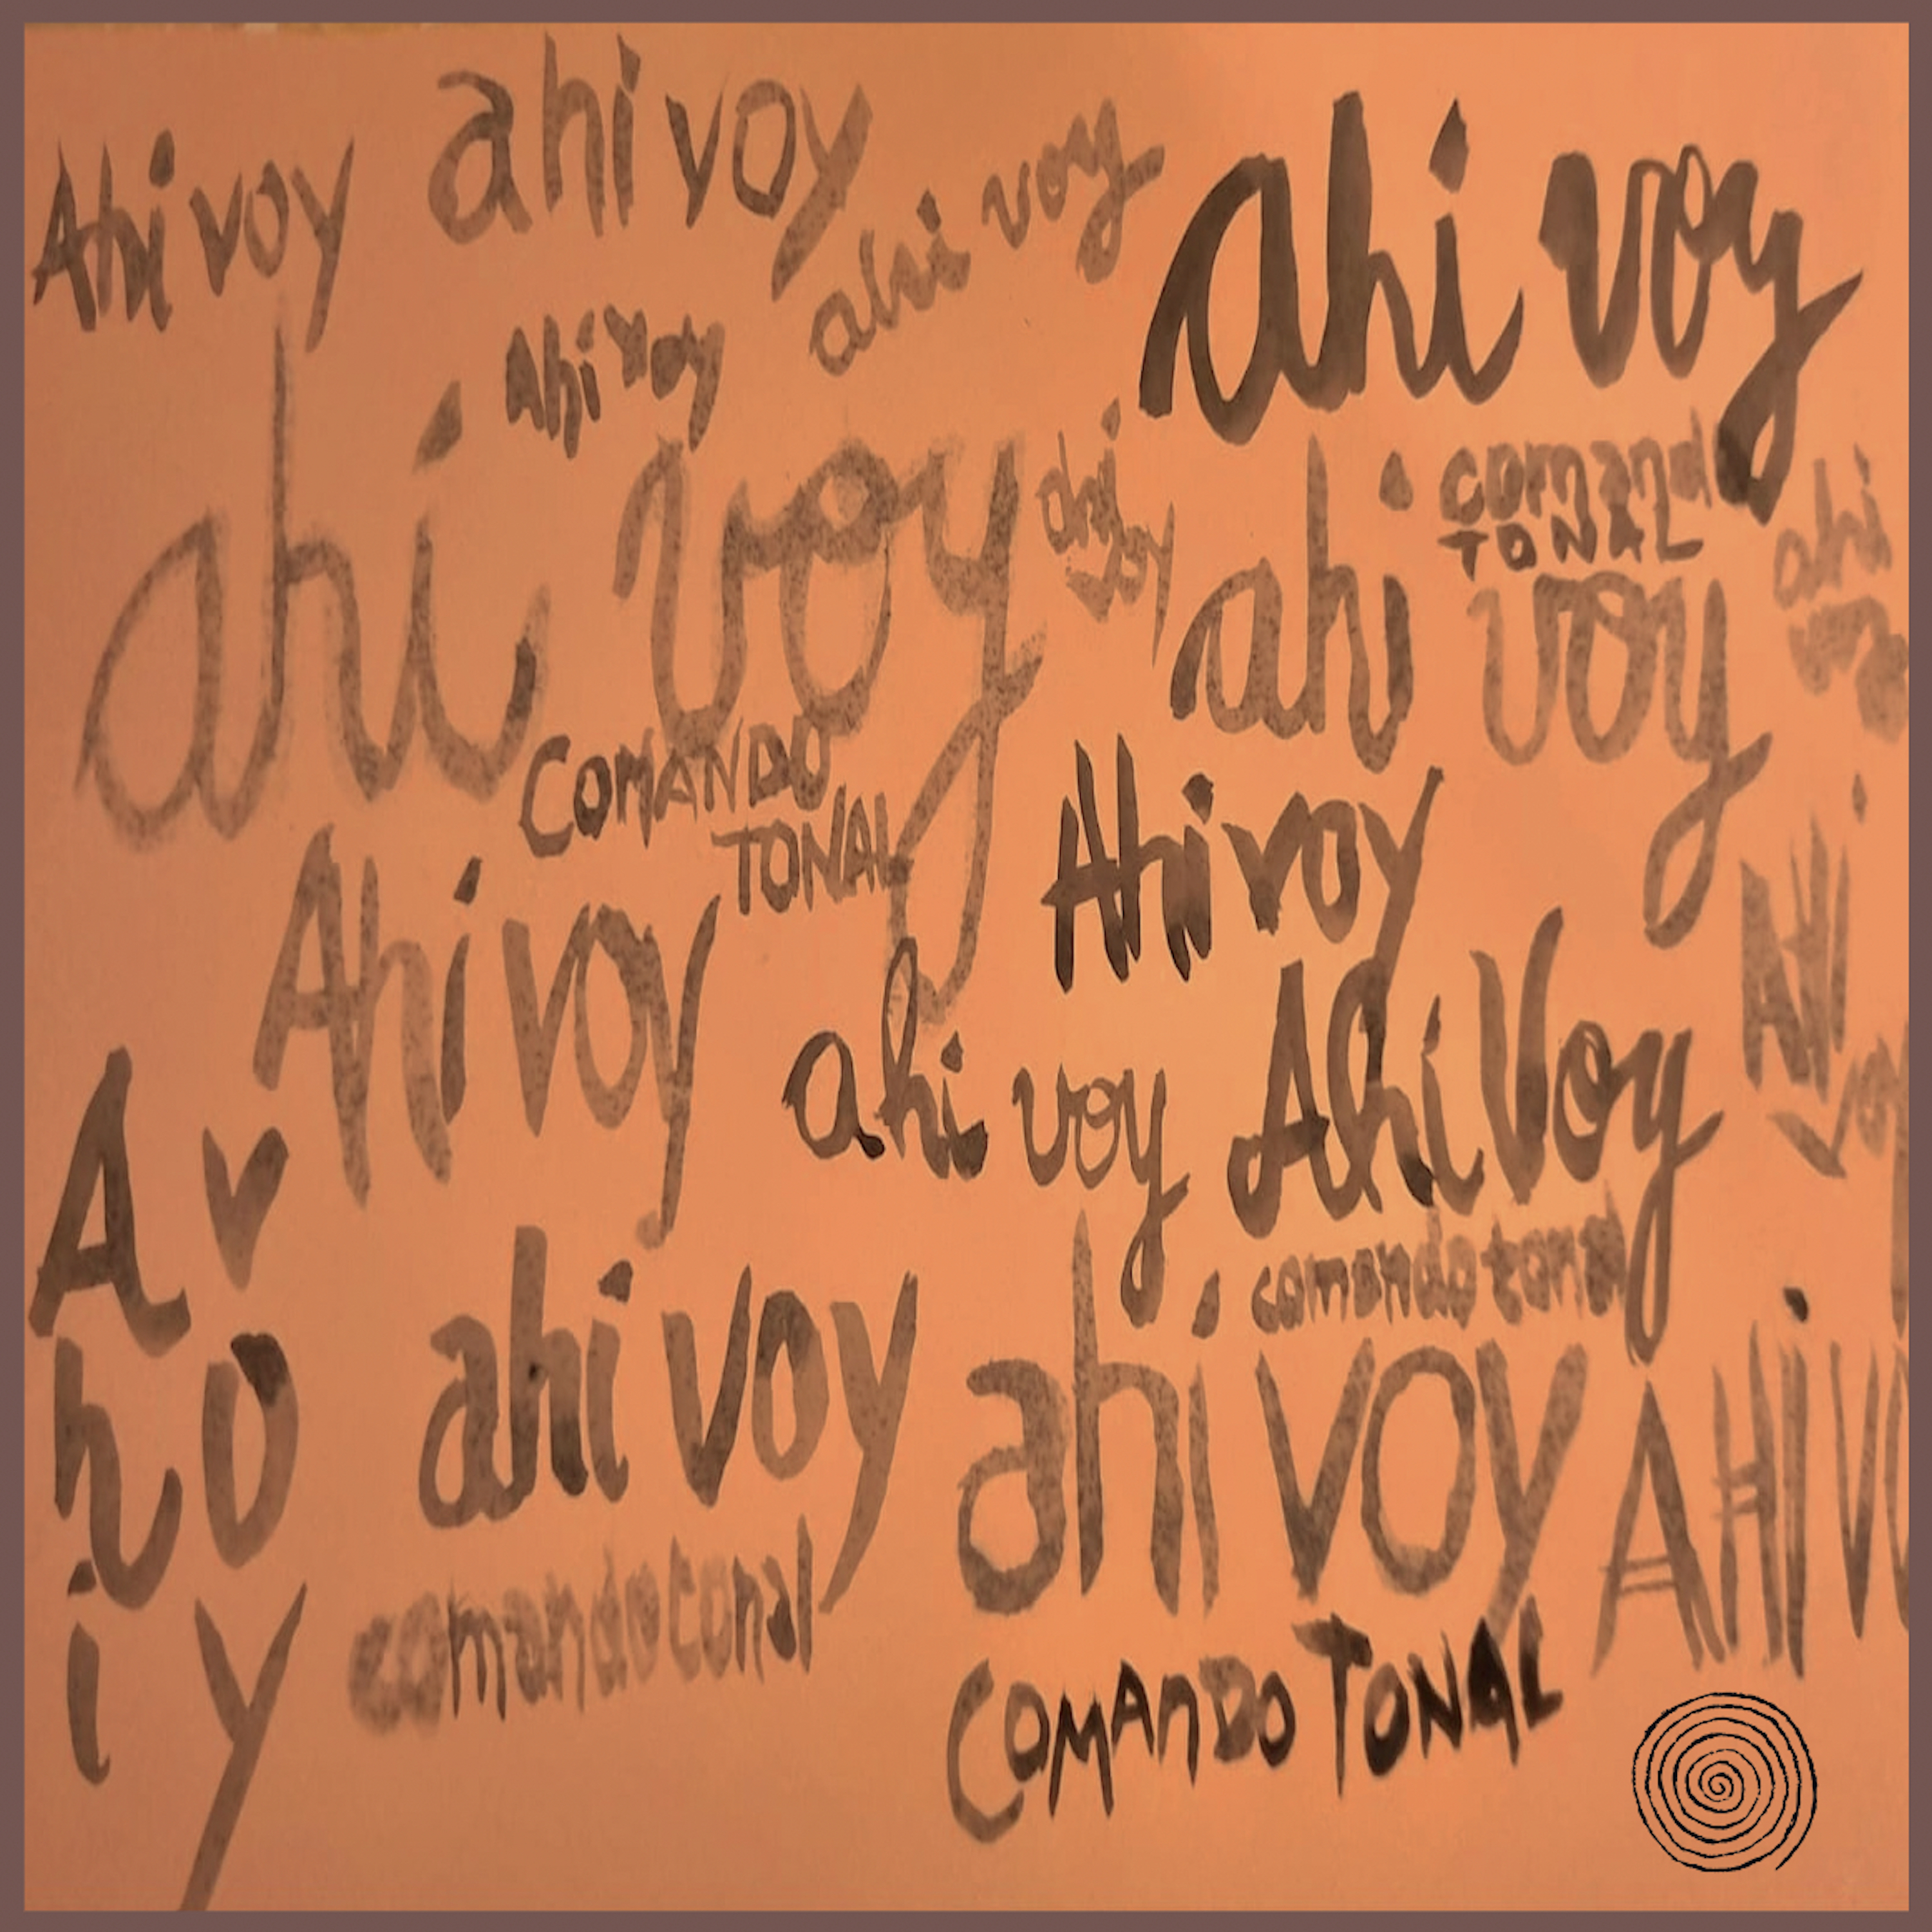 Ahi voy
ahi voy
ahi voy
ahi voy
Ahi voy
ahi voy
ahi voy
comand
TONAL
ahi voy
ahi
voy
COMANDO
TONAL
Ahi voy
Ahi voy
AHi
voy
ahi voy
Ahi Voy
Ahi
voy
comando tonal
ahi voy
ahi voy
AHiVO
comando tonal
COMAnDO TONAL